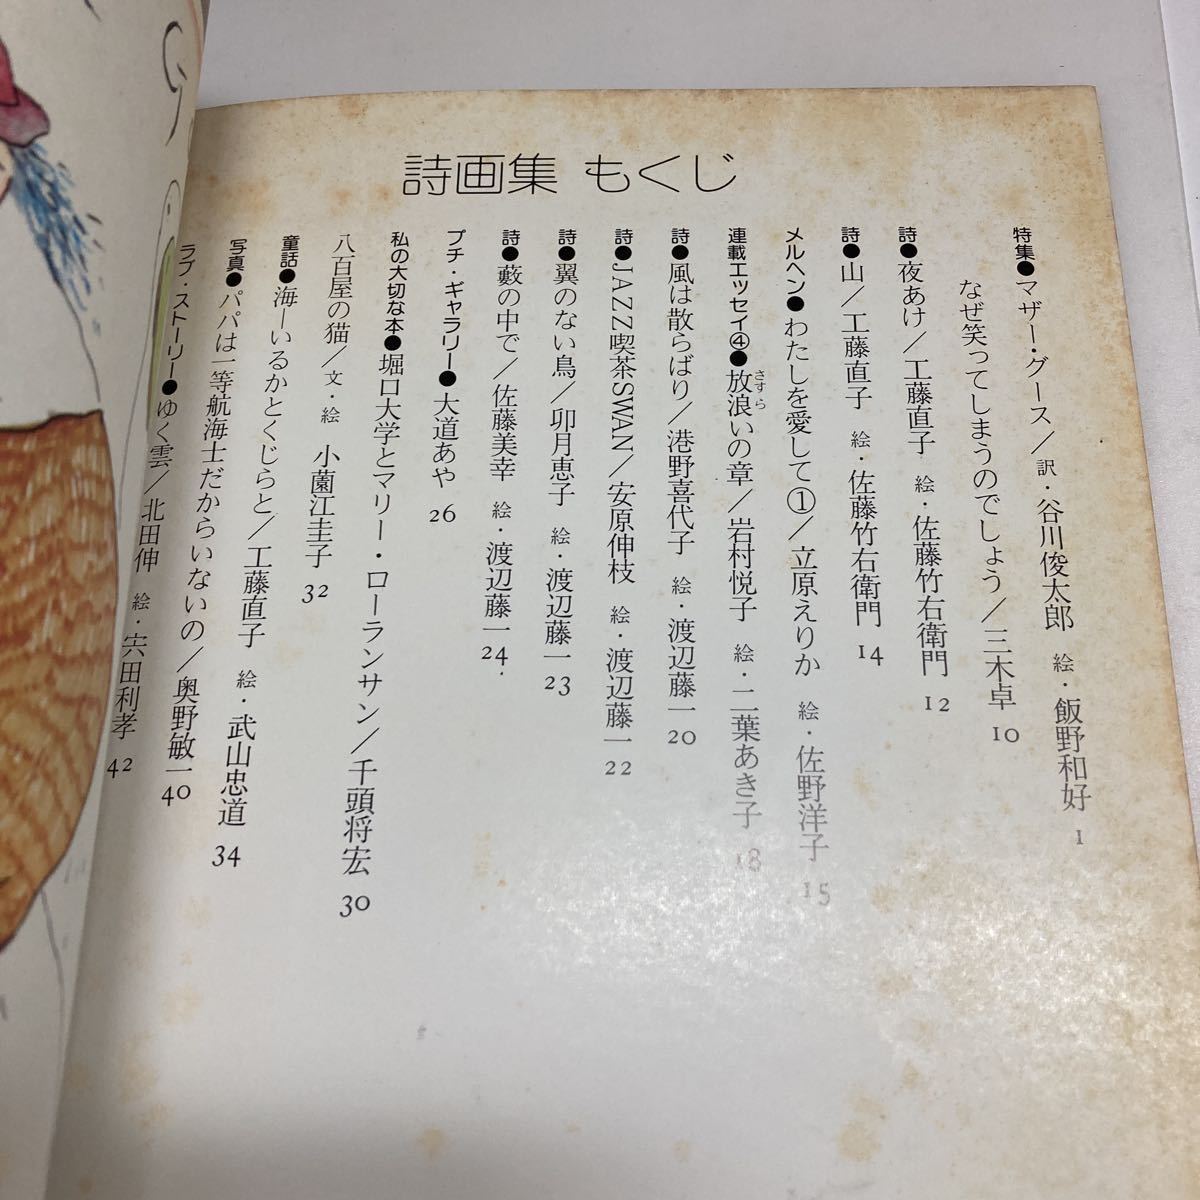 詩画集 もくじ
特集●マザー・グース／訳・谷川俊太郎 絵・飯野和好 1
なぜ笑ってしまうのでしょう／三木卓 10
詩●夜あけ／工藤直子 絵・佐藤竹右衛門 12
詩●山／工藤直子 絵・佐藤竹右衛門 14
メルヘン●わたしを愛して①／立原えりか 絵・佐野洋子 15
連載エッセイ④●放浪いの章／岩村悦子 絵・二葉あき子 18
さすら
詩●風は散らばり／港野喜代子 絵・渡辺藤一 20
詩●JAZZ喫茶SWAN／安原伸枝 絵・渡辺藤一 22
詩●翼のない鳥／卯月恵子 絵・渡辺藤一 23
詩●藪の中で／佐藤美幸 絵・渡辺藤一 24
プチ・ギャラリー●大道あや 26
私の大切な本●堀口大学とマリー・ローランサン／千頭将宏 30
八百屋の猫／文・絵 小薗江圭子 32
童話●海―いるかとくじらと／工藤直子 絵・武山忠道 34
写真●パパは一等航海士だからいないの／奥野敏一 40
ラブ・ストーリー●ゆく雲／北田伸 絵・宍田利孝 42